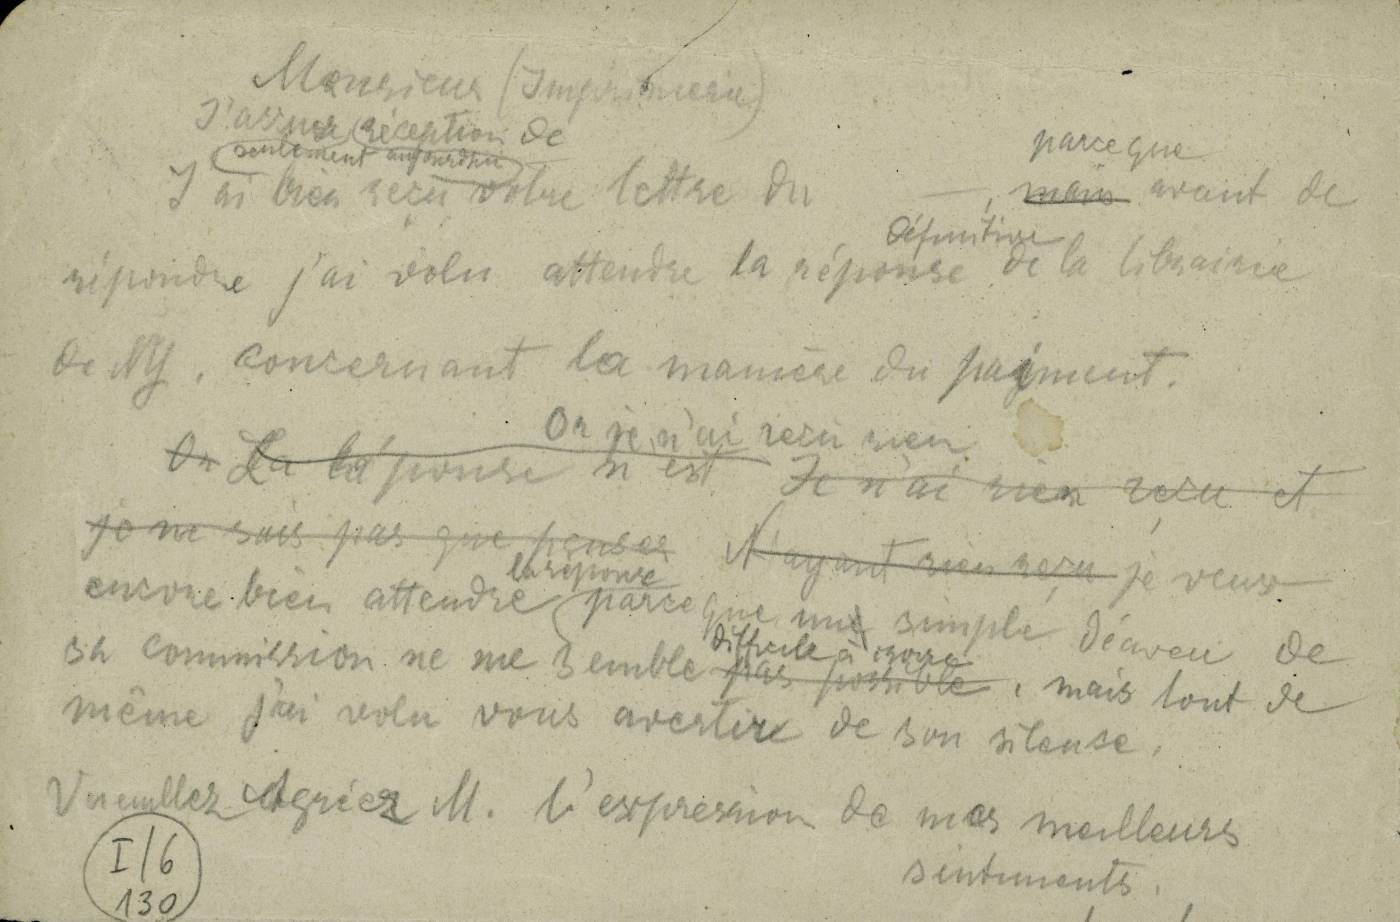 Monsieur (Imprimerie)
J'assure réception de
seulement aujourdhui
J'ai bien reçu votre lettre du — , parceque
mais avant de
définitive
répondre j'ai volu attendre la réponse de la librairie
de NY, concernant la manière du paiment.
Or je n'ai reçu rien
Or La réponse n'est Je n'ai rien reçu et
je ne sais pas que penser N'ayant rien reçu je veux
la réponse
encore bien attendre parceque une simple déaveu de
difficile à
sa commission ne me semble pas possible, mais tout de
même j'ai volu vous avertir de son silense.
Veuillez Agréez M. l'expression de mes meilleurs
sentiments.
I/6
130